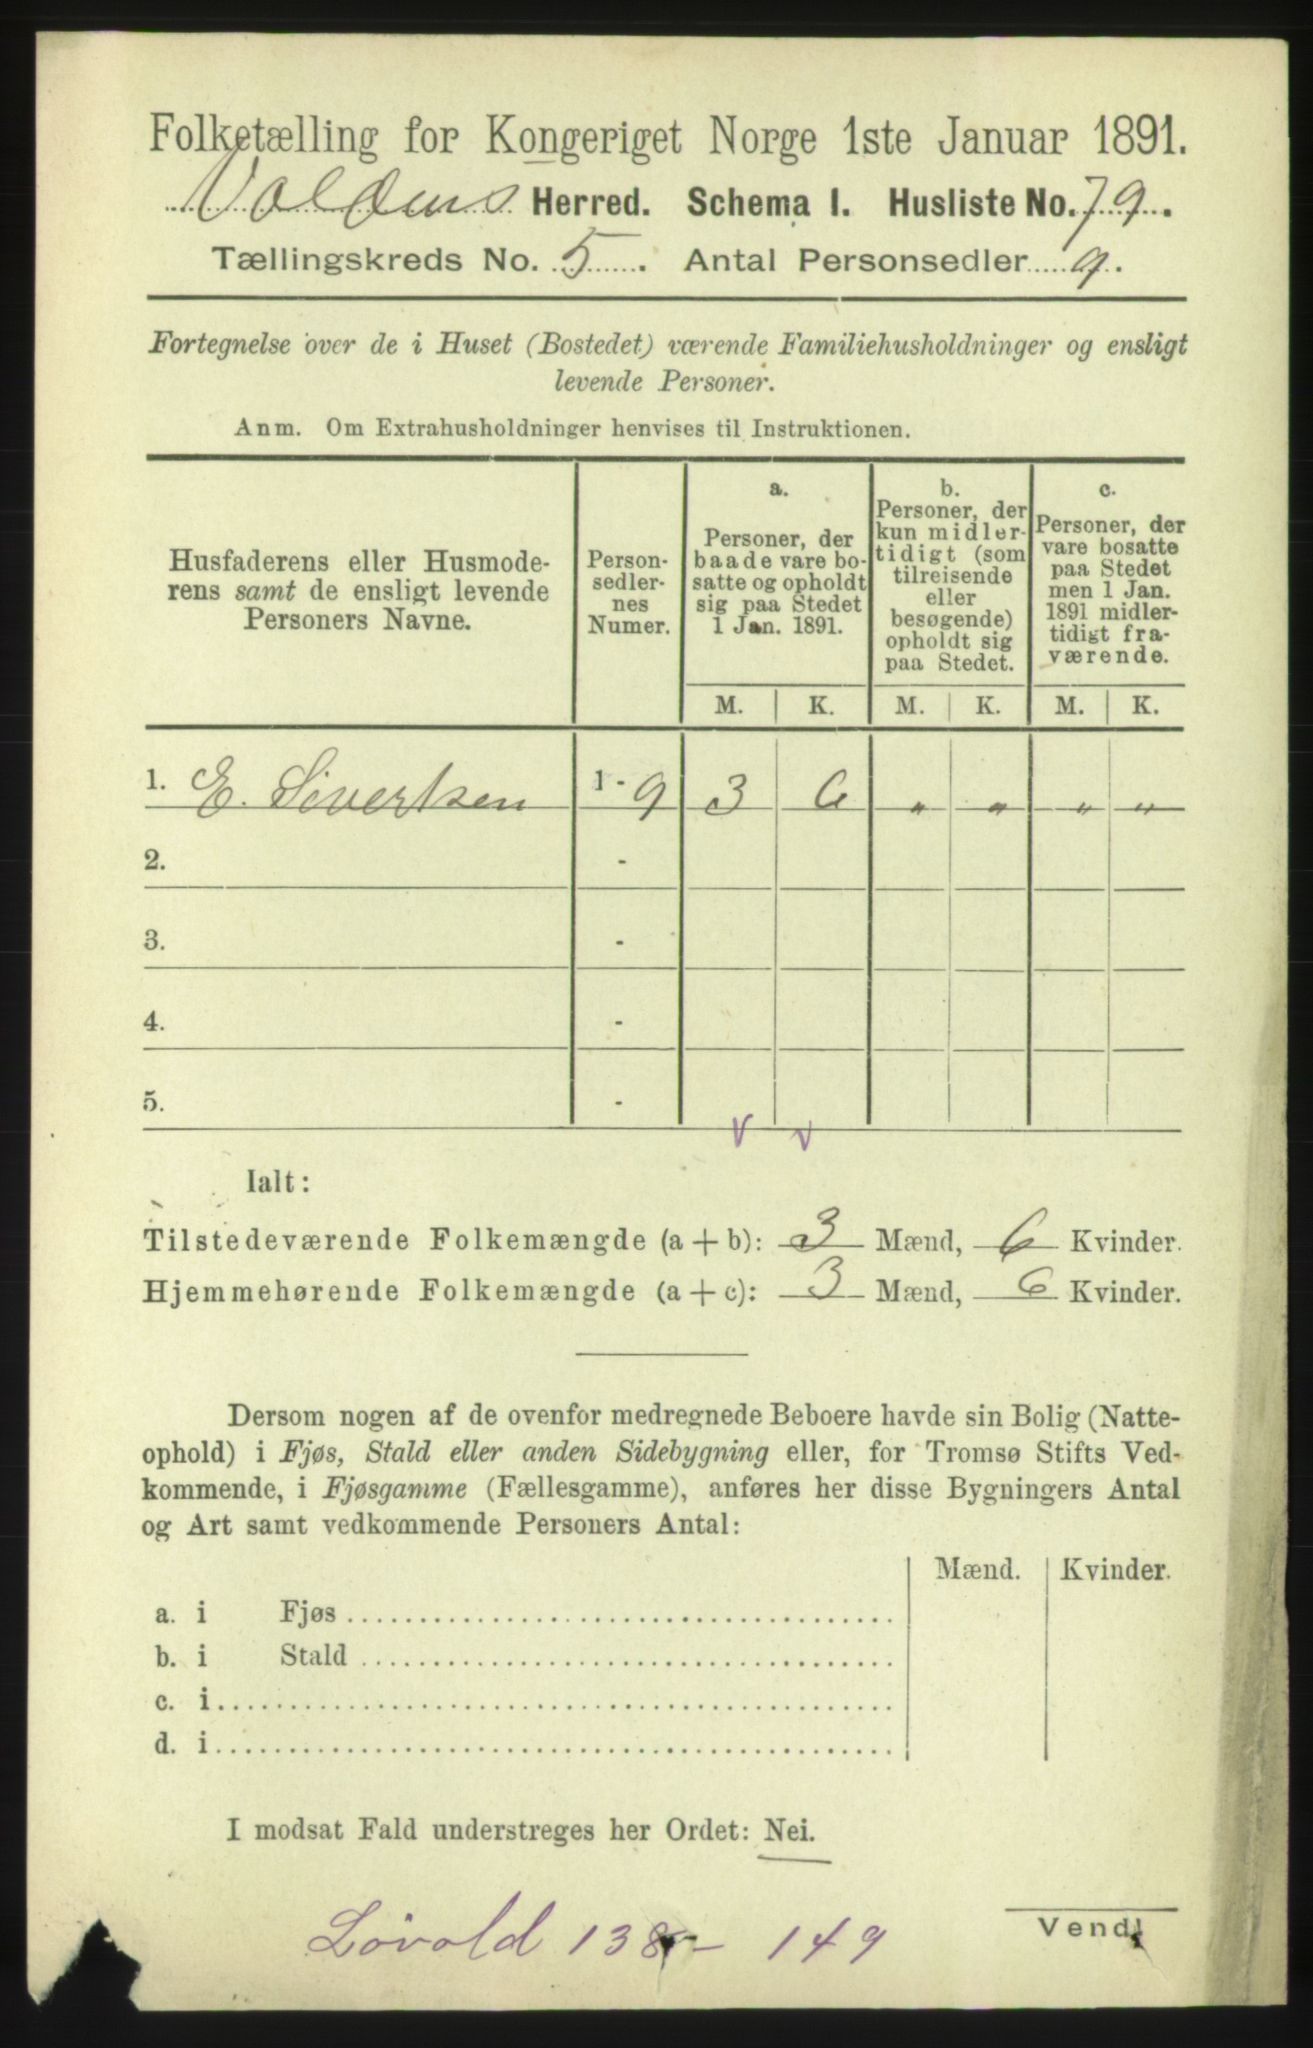 Folketælling for Kongeriget Norge 1ste Januar 1891.
Voldens Herred. Schema 1. Husliste No. 79.
Tællingskreds No. 5. Antal Personsedler 9.
Fortegnelse over de i Huset (Bostedet) værende Familiehusholdninger og ensligt
levende Personer.
Anm. Om Extrahusholdninger henvises til Instruktionen.
Husfaderens eller Husmode-
rens samt de ensligt levende
Personers Navne.
Person-
sedler-
nes
Numer.
a.
Personer, der
baade vare bo-
satte og opholdt
sig paa Stedet
1 Jan. 1891.
b.
Personer, der
kun midler-
tidigt (som
tilreisende
eller
besøgende)
opholdt sig
paa Stedet.
c.
Personer, der
vare bosatte
paa Stedet
men 1 Jan.
1891 midler-
tidigt fra-
værende.
M. K. M. K. M. K.
1. E. Sivertsen 1 - 9 3 6 " " " "
2. -
3. -
4. -
5. -
v v
Ialt:
Tilstedeværende Folkemængde (a + b): 3 Mænd, 6 Kvinder.
Hjemmehørende Folkemængde (a + c): 3 Mænd, 6 Kvinder.
Dersom nogen af de ovenfor medregnede Beboere havde sin Bolig (Natte-
ophold) i Fjøs, Stald eller anden Sidebygning eller, for Tromsø Stifts Ved-
kommende, i Fjøsgamme (Fællesgamme), anføres her disse Bygningers Antal
og Art samt vedkommende Personers Antal:
Mænd. Kvinder.
a. i Fjøs
b. i Stald
c. i
d. i
I modsat Fald understreges her Ordet: Nei.
Vend!
Lövold 138 - 149